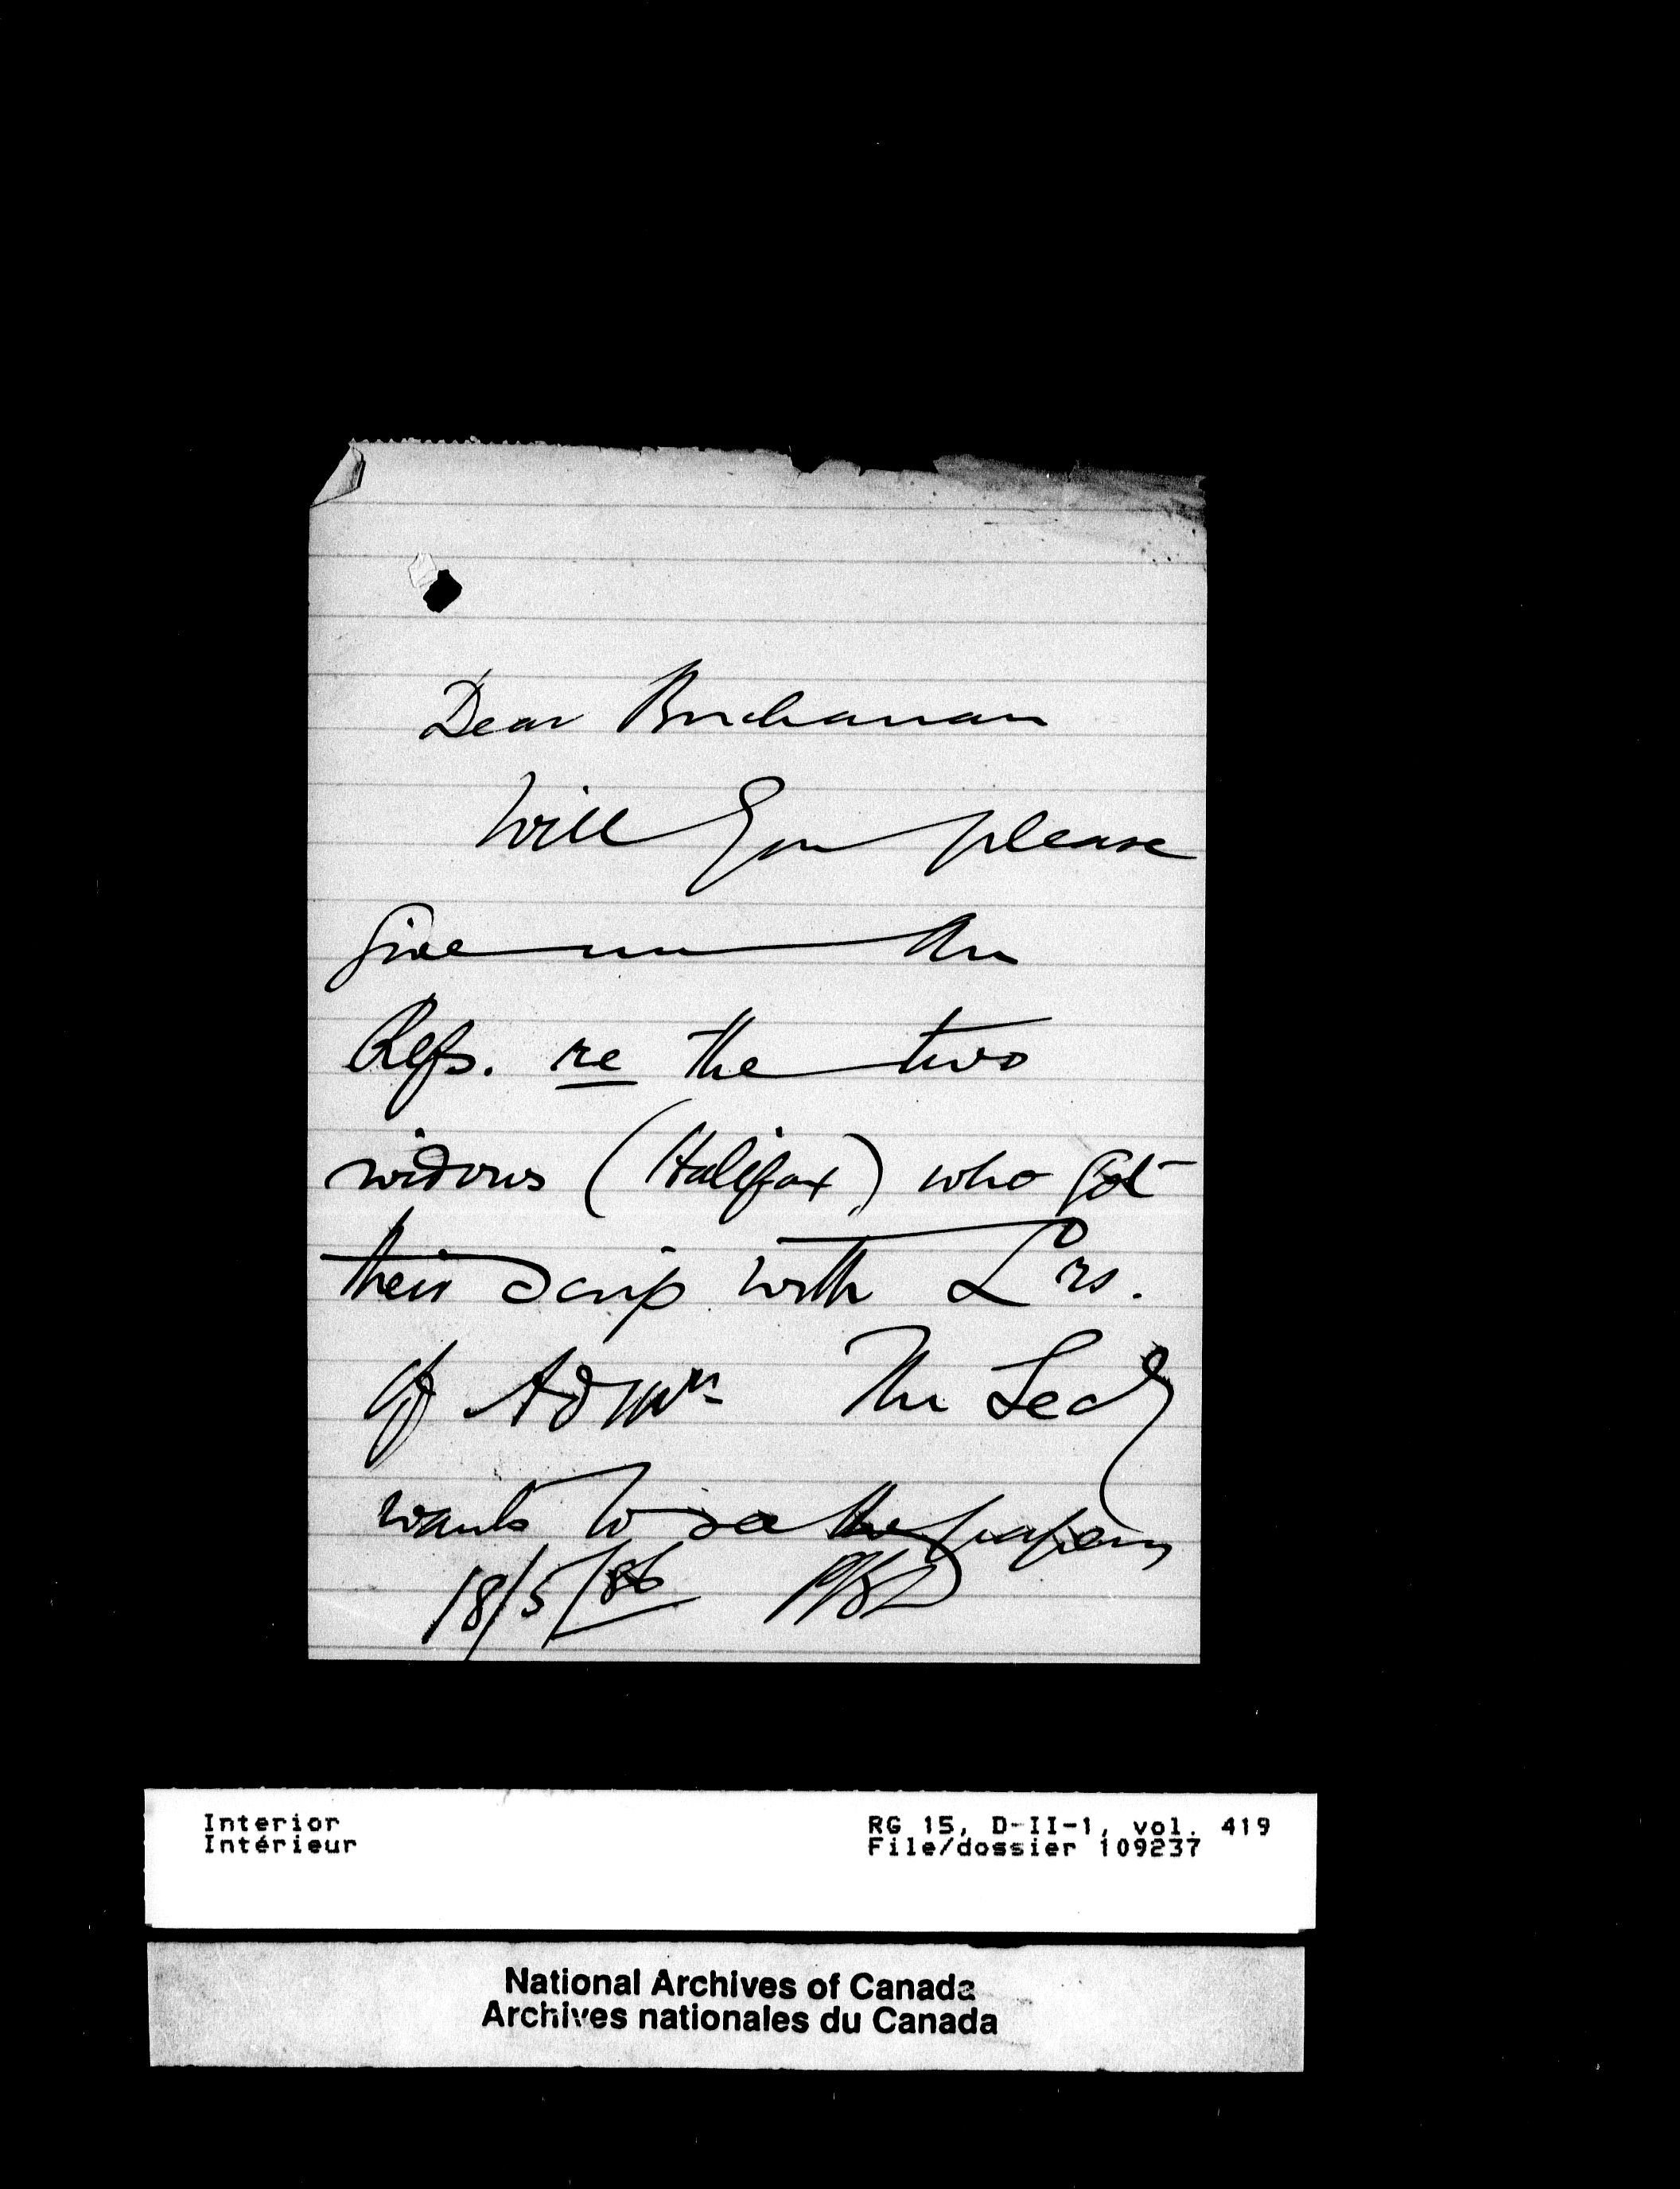 Dear Buchanan
Will you please
give me the
Refs. re the two
widows (Halifax) who got
their scrip with Lrs.
of Admn The Secy
wants to see the papers
18/5/86
Interior
Intérieur
RG 15, D-II-1, vol. 419
File/dossier 109237
National Archives of Canada
Archives nationales du Canada